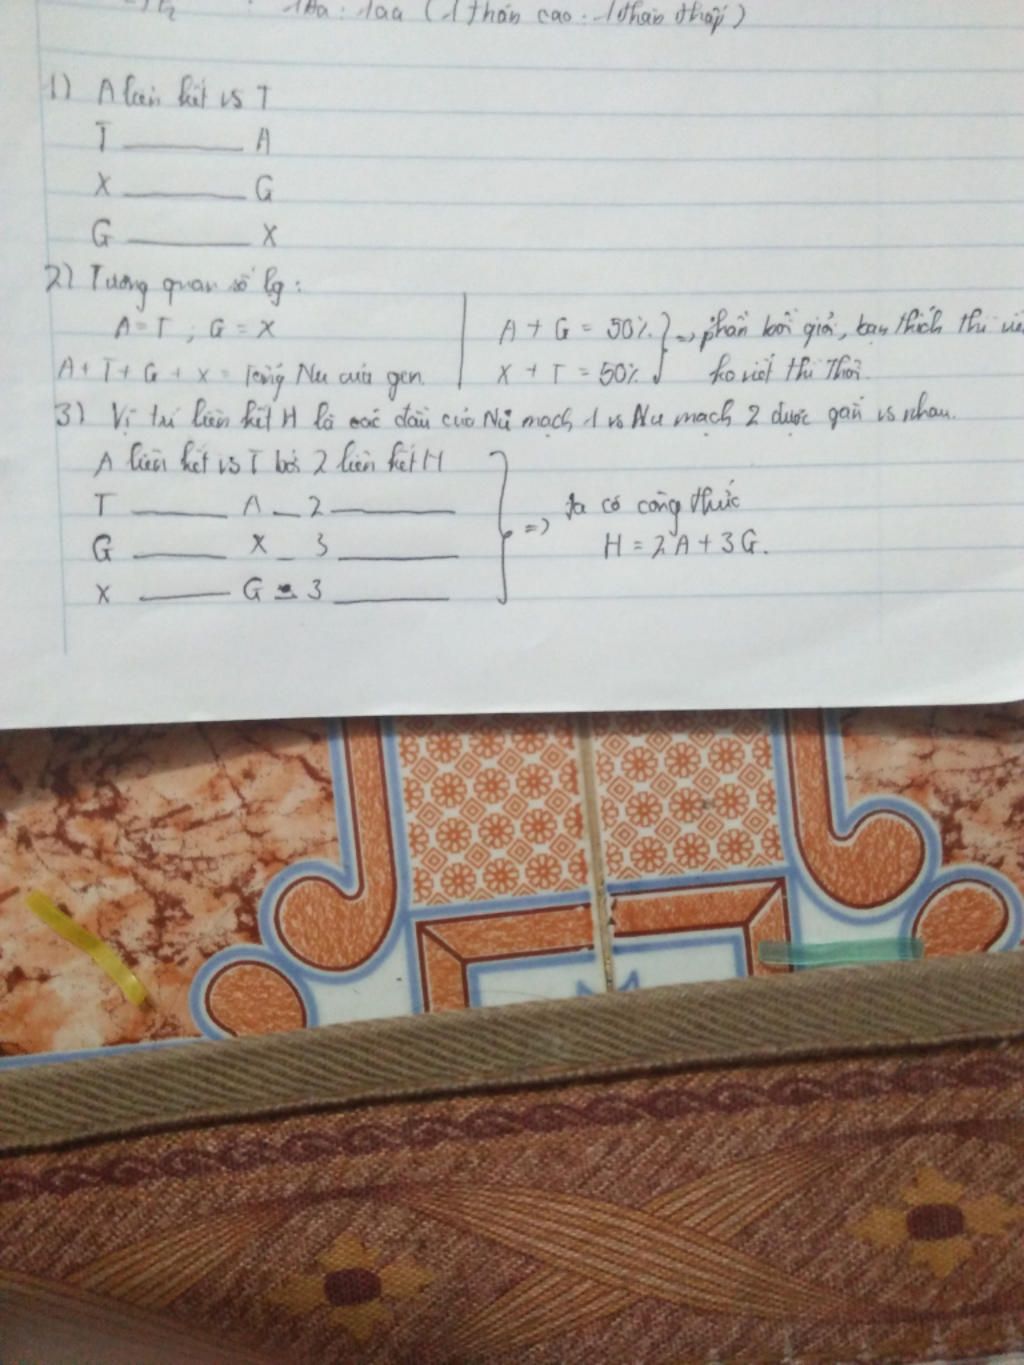 1Aa : 1aa (1 thân cao : 1 thân thấp)
1) A liên kết vs T
T ______ A
X ______ G
G ______ X
2) Tương quan số lg :
A = T ; G = X
A + T + G + X = Tổng Nu của gen.
A + G = 50% } => phần bổ giải, bạn thích thì viế
X + T = 50% } ko viết thì thôi.
3) Vị trí liên kết H là các đầu của Nu mạch 1 vs Nu mạch 2 được gắn vs nhau.
A liên kết vs T bởi 2 liên kết H
T ______ A _ 2 ______
G ______ X _ 3 ______
X ______ G _ 3 ______
=> ta có công thức
H = 2A + 3G.